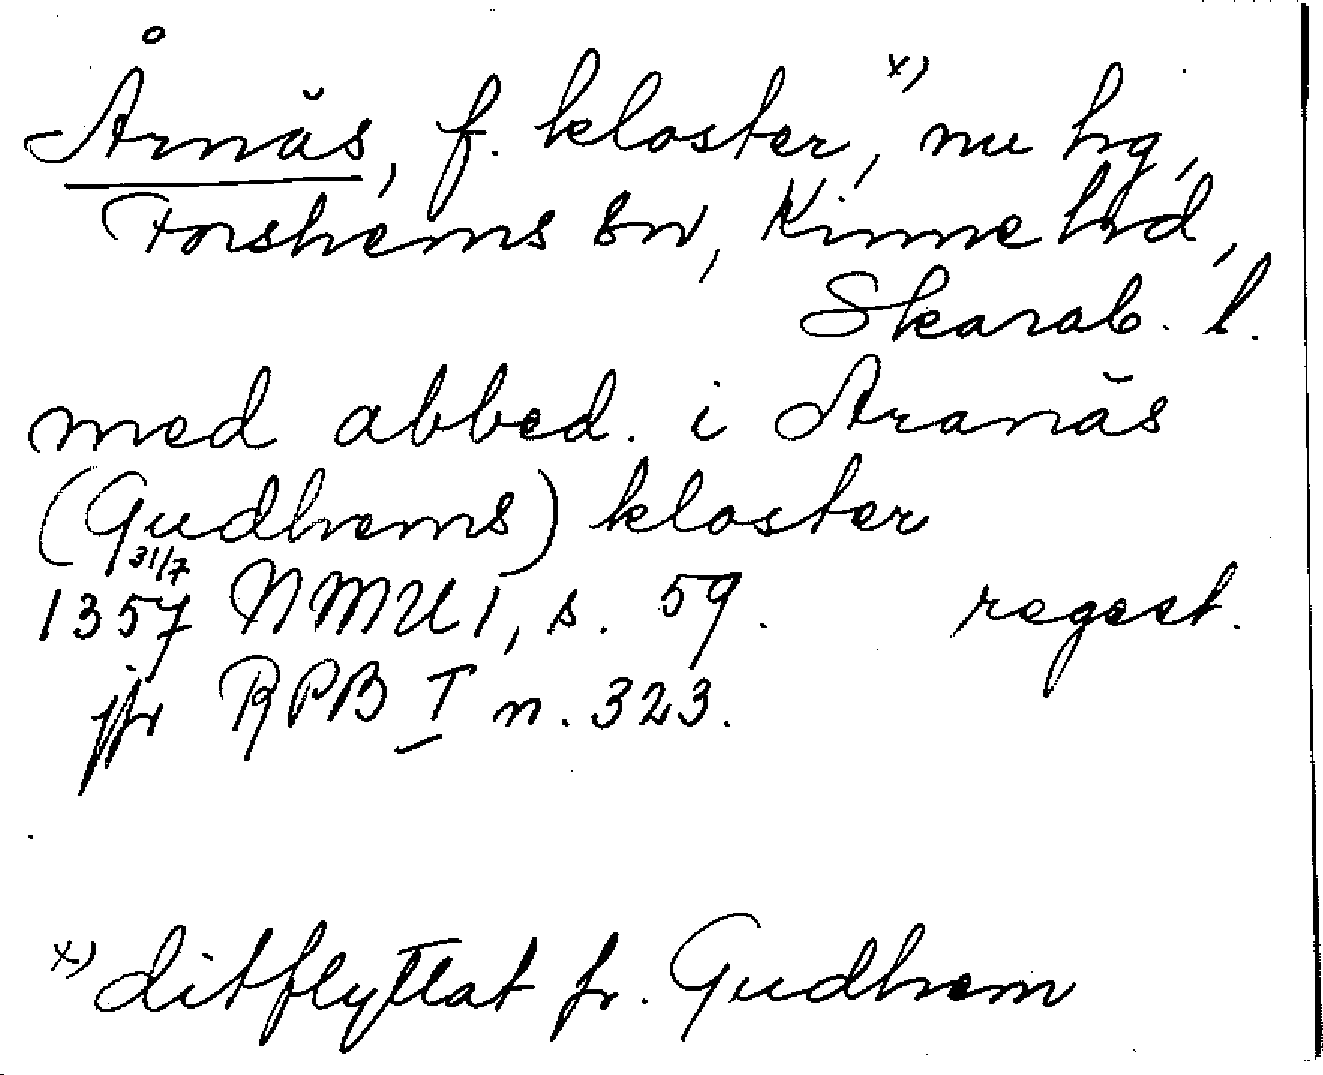 Årnäs, f. kloster,ˣ⁾ nu hg,
Forshems sn, Kinne hrd,
Skarab. l.
med abbed. i Aranäs
(Gudhems) kloster
31/7
1357 NMU 1, s. 59. regest.
jfr RPB I n. 323.
ˣ⁾ ditflyttat fr. Gudhem